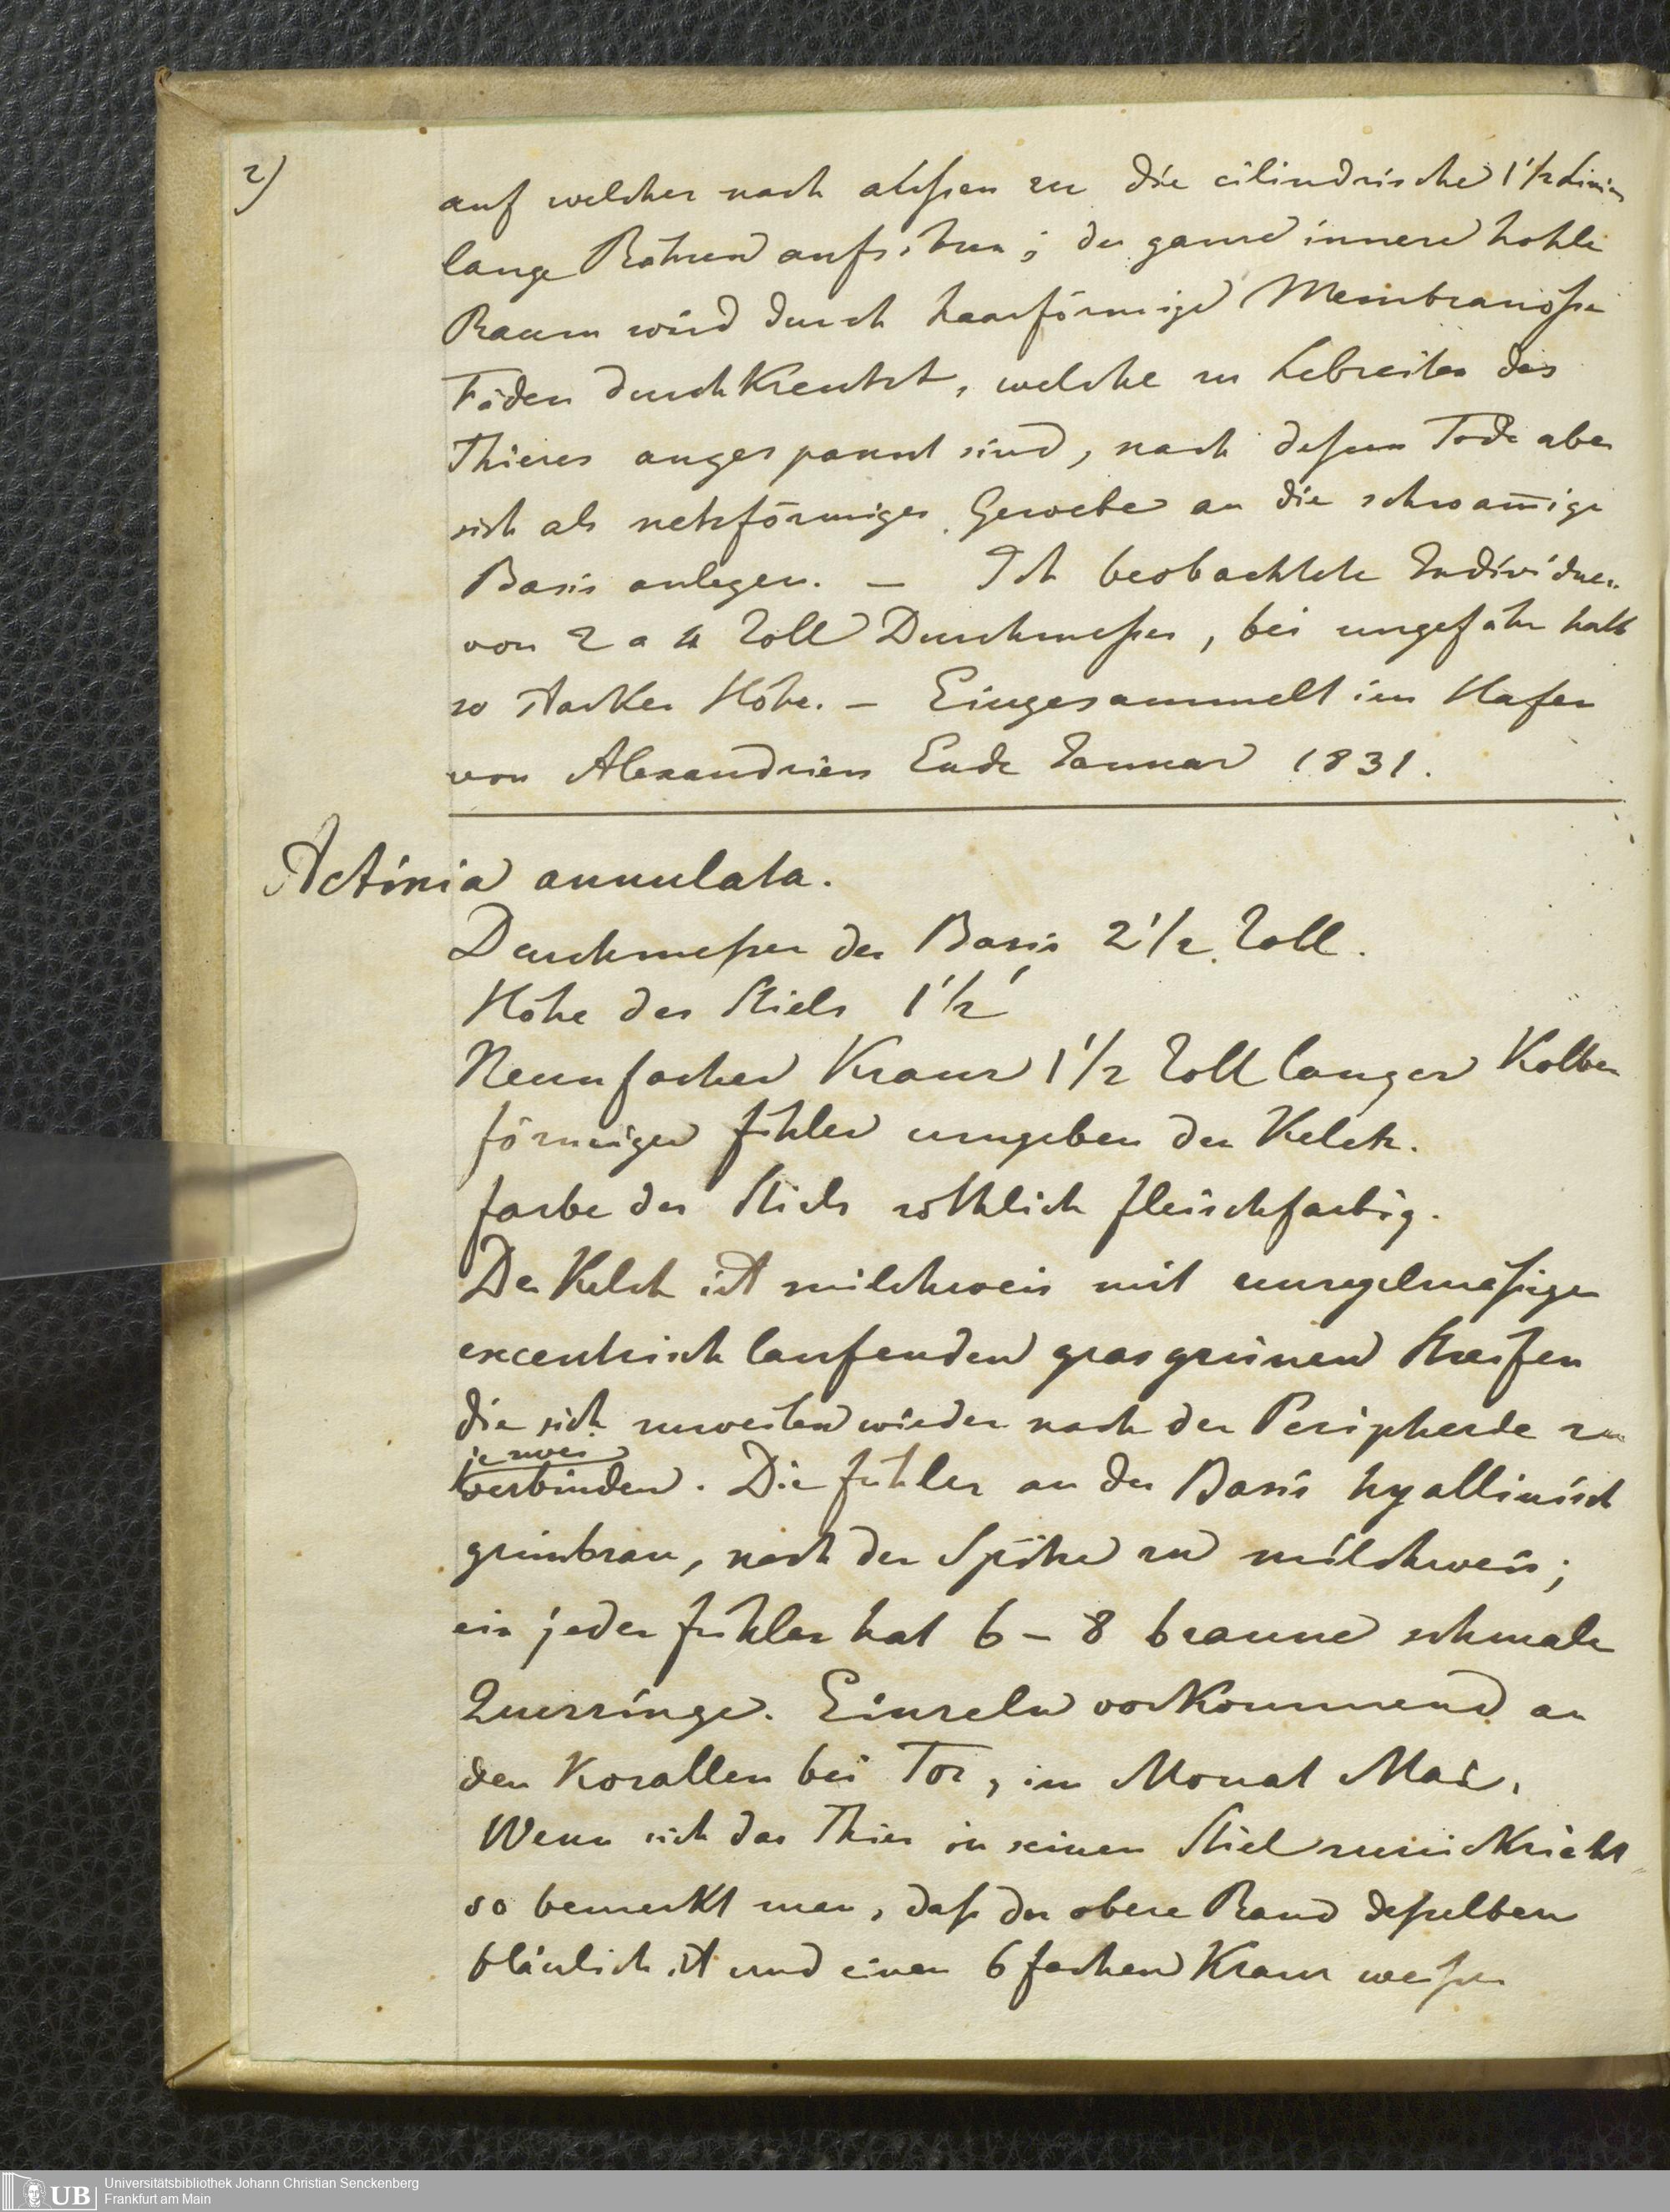 2)
auf welcher nach außen zu die cilindrische 1 1/2 Linien
lange Röhren aufsitzen; der ganze innere hohle
Raum wird durch haarförmige Membranöse
Fäden durchkreutzt, welche zu Lebzeiten des
Thieres angespannt sind, nach deßen Tode aber
sich als netzförmiges Gewebe an die schwam̄ige
Basis anlegen. – Ich beobachtete Individuen
von 2 a 4 Zoll Durchmeßer, bei ungefähr halb
so starker Höhe. – Eingesammelt im Hafen
von Alexandrien Ende Januar 1831.
Actinia annulata.
Durchmeßer der Basis 2 1/2 Zoll.
Höhe des Stiels 1 1/2'
Neunfacher Kranz 1 1/2 Zoll langer Kolben
förmiger fühler umgeben den Kelch.
farbe des Stiels röthlich fleischfarbig.
Der Kelch ist milchweis mit unregelmäßigen
excentrisch laufenden grasgrünen Streifen
die sich zuweilen wieder nach der Peripherie zu
je zwei
verbinden. Die fühler an der Basis hyallinisch
grünbraun, nach der Spitze zu milchweis;
ein jeder fühler hat 6 – 8 braune schmale
Querringe. Einzeln vorkommend an
den Korallen bei Tor, im Monat Mai.
Wenn sich das Thier in seinen Stiel zurückzieht
so bemerkt man, daß der obere Rand deßelben
bläulich ist und einen 6 fachen Kranz weißer
Universitätsbibliothek Johann Christian Senckenberg
Frankfurt am Main
UB